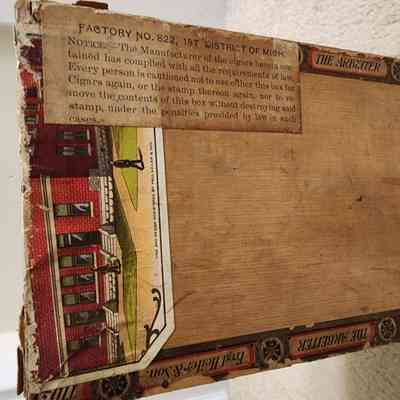 FACTORY NO. 822, 1ST DISTRICT OF MICH.
NOTICE.—The Manufacturer of the cigars herein con-
tained has complied with all the requirements of law.
Every person is cautioned not to use either this box for
Cigars again, or the stamp thereon again, nor to re-
move the contents of this box without destroying said
stamp, under the penalties provided by law in such
cases.
THE ARBEITER
THE ARBEITER
& Son.
THE